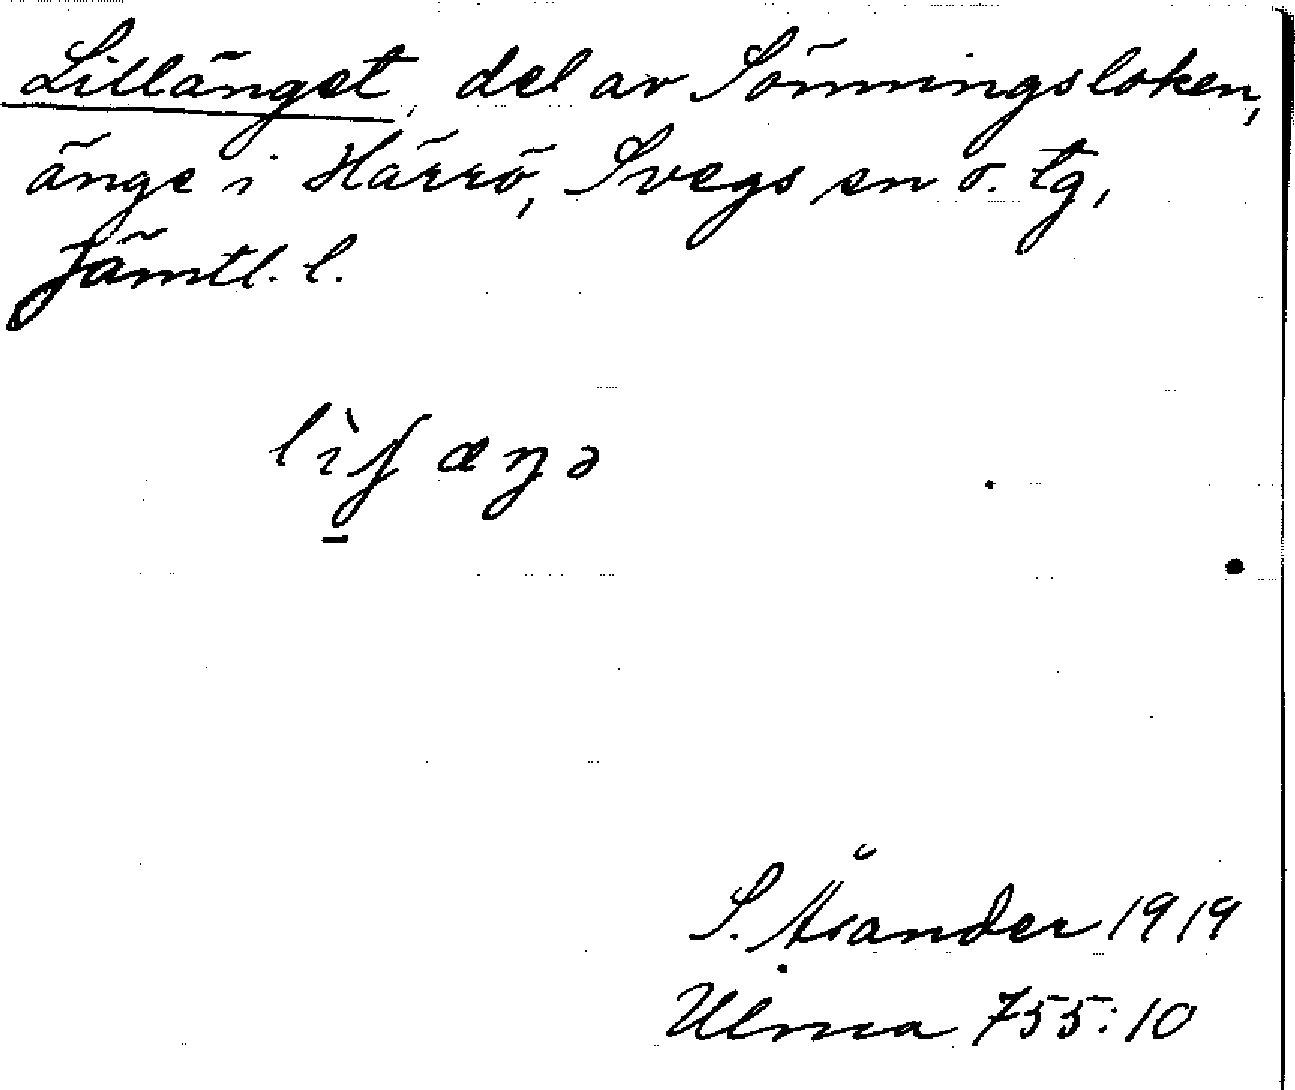 Lillänget, del av Sönningsloken,
änge i Härrö, Svegs sn o. tg,
Jämtl. l.
S. Åsander 1919
Ulma 755:10